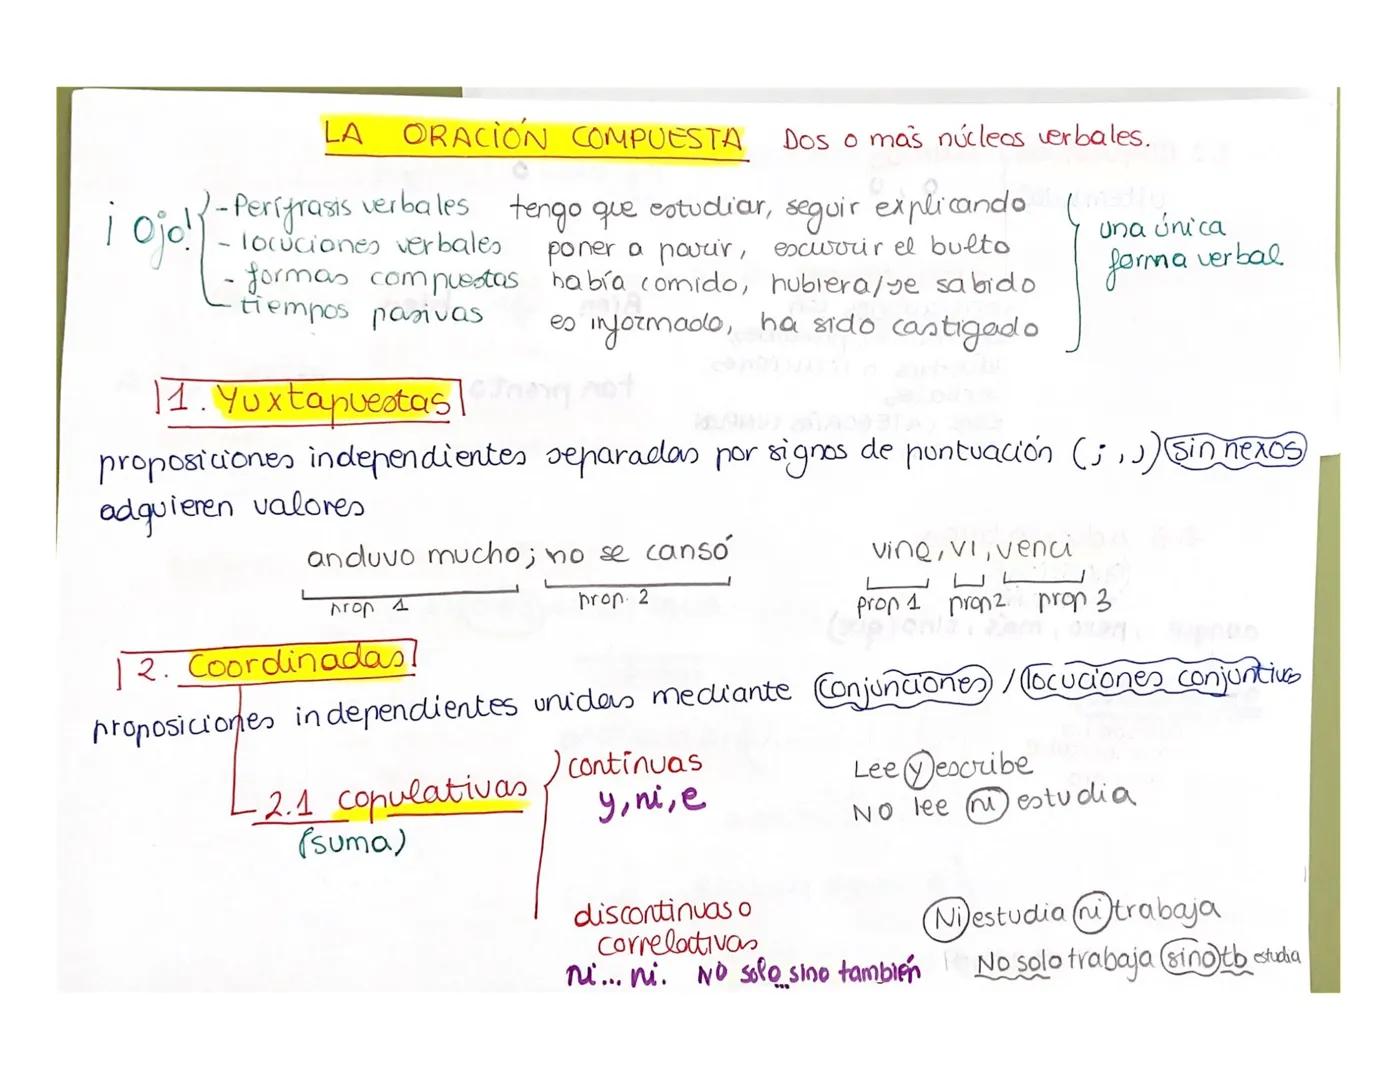 LA ORACIÓN COMPUESTA Dos o más núcleos verbales.
¡Ojo!
-Perífrasis verbales tengo que estudiar, seguir explicando
- locuciones verbales poner a parir, escurrir el bulto
- formas compuestas había comido, hubiera/se sabido
- tiempos pasivas es informado, ha sido castigado
una única
forma verbal
1. Yuxtapuestas
proposiciones independientes separadas por signos de puntuación (; , ,) sin nexos
adquieren valores
anduvo mucho; no se cansó vine, vi, vencí
prop 1 prop. 2 prop 1 prop2 prop 3
2. Coordinadas
proposiciones independientes unidas mediante conjunciones / locuciones conjuntivas
2.1 copulativas
(suma)
continuas Lee y escribe
y, ni, e NO lee ni estudia
discontinuas o Ni estudia ni trabaja
correlativas
ni... ni. NO solo...sino también No solo trabaja sino tb estudia